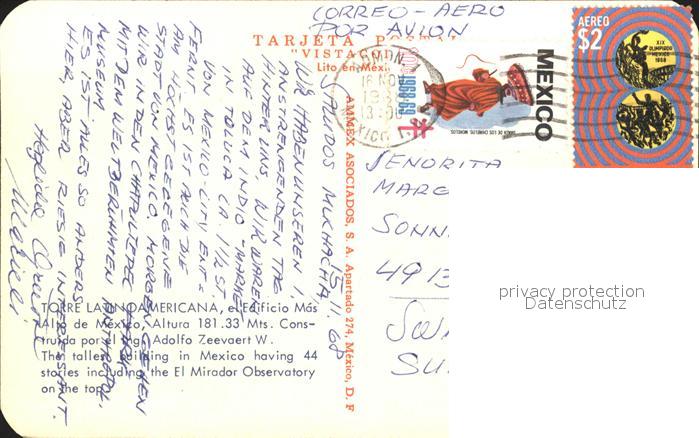 CORREO-AERO
POR AVION
TARJETA POSTAL
"VISTACOLOR"
Lito en Mexi
MEXICO
AEREO
$2
XIX
OLIMPIADA
MEXICO
1968
1968-69
16 NO
13
DANZA DE LOS CHINELOS, MORELOS
AMMEX ASOCIADOS, S. A. Apartado 274, México, D. F
15.11.68
SALUDOS MUCHACHA,
WIR HABEN UNSEREN 1.
ANSTRENGENDEN TAG
HINTER UNS. WIR WAREN
AUF DEM INDIO-MARKT
IN TOLUCA CA. 1 1/2 ST.
VON MEXICO-CITY ENT-
FERNT. ES IST AUCH DIE
AM HÖCHST GELEGENE
STADT VON MEXICO. MORGEN GEHEN
WIR IN DEN CHAPULTEPEC PARK
MIT DEM WELTBERÜHMEN ANTHROPOL.
MUSEUM
ES IST ALLES SO ANDERS
HIER, ABER RIESIG INTERESSANT.
SEÑORITA
MARG
SONN
4913
SUI
privacy protection
Datenschutz
TORRE LATINOAMERICANA, el Edificio Más
Alto de México, Altura 181.33 Mts. Cons-
truida por el Ing. Adolfo Zeevaert W.
The tallest building in Mexico having 44
stories including the El Mirador Observatory
on the top.